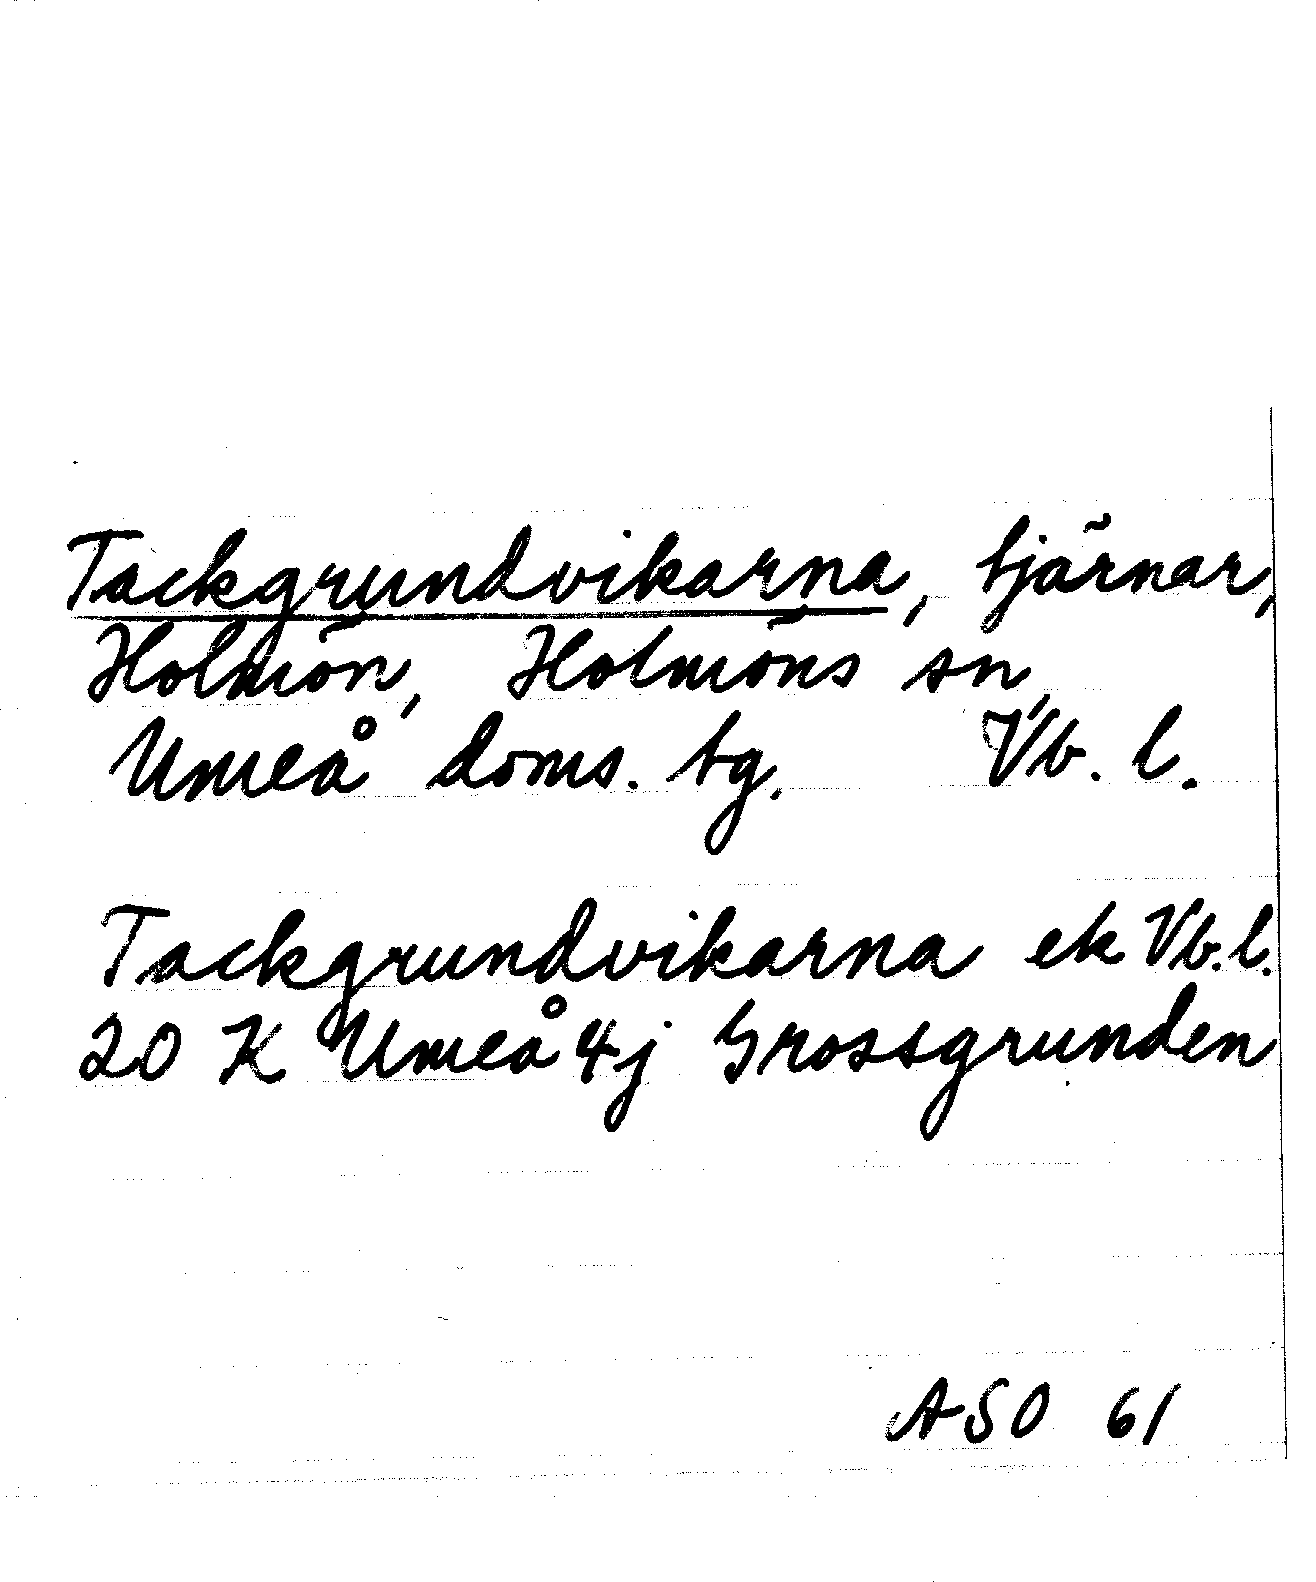 Tackgrundvikarna, tjärnar,
Holmön, Holmöns sn,
Umeå doms. tg. Vb. l.
Tackgrundvikarna ek Vb. l.
20 K Umeå 4j Grossgrunden
ASO 61